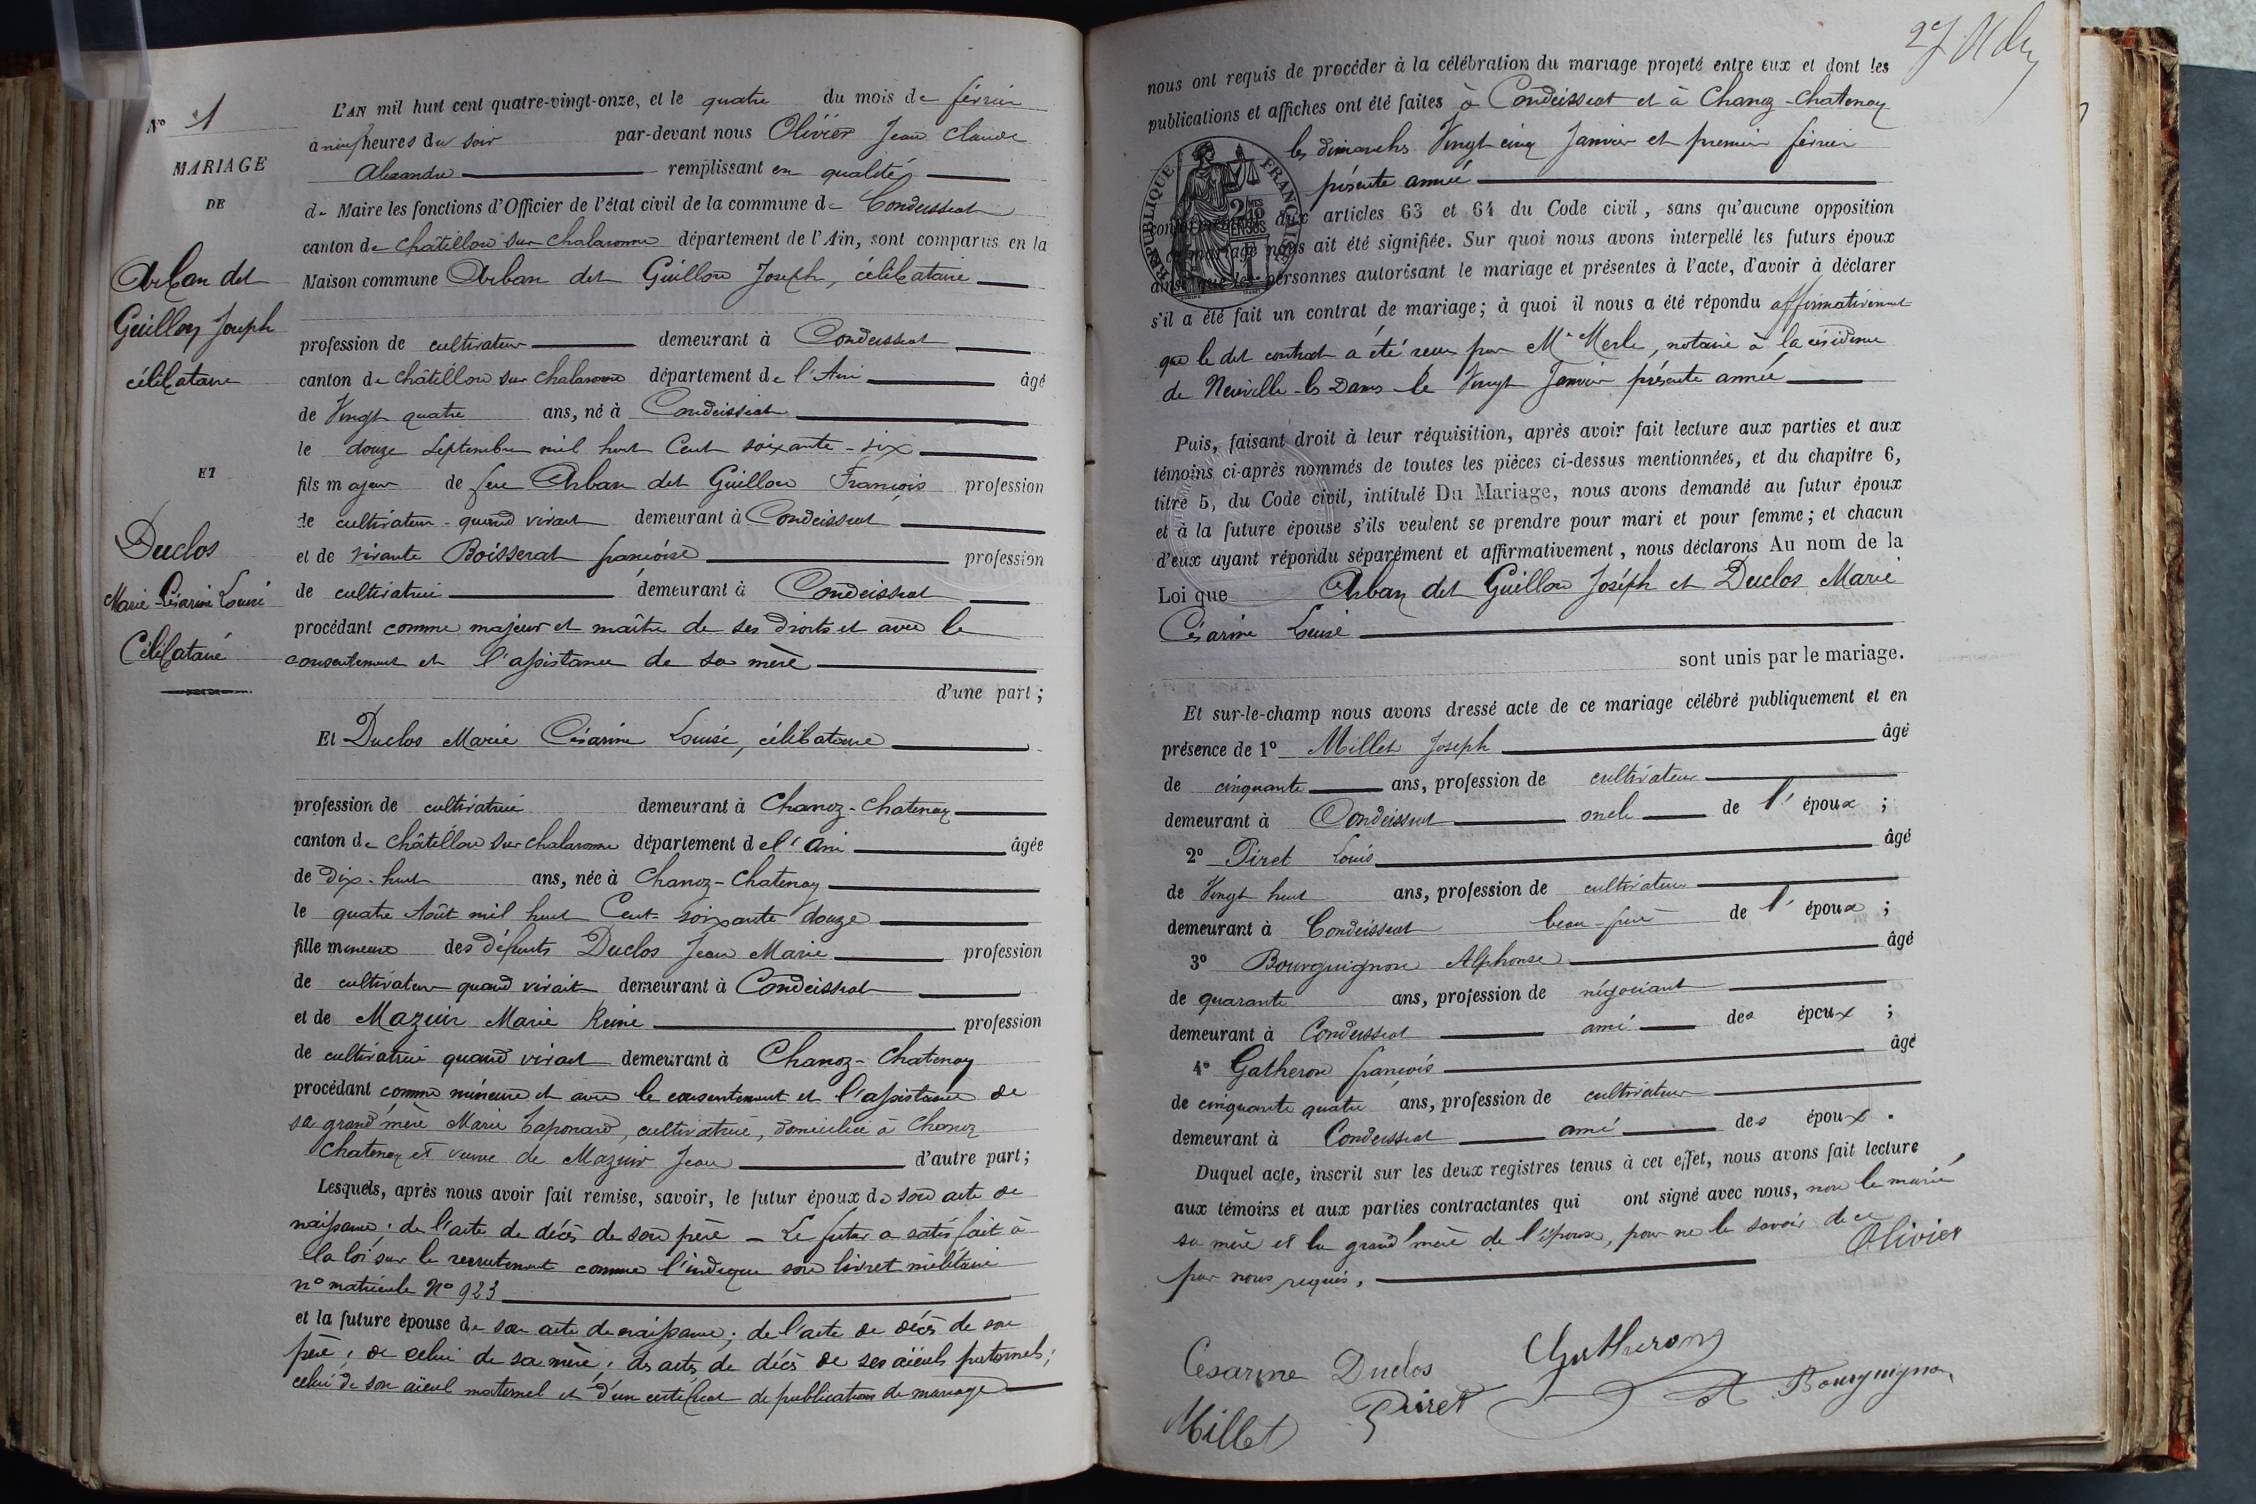 N° 1
MARIAGE
DE
Arban dit
Guillon Joseph
célibataire
ET
Duclos
Marie Césarine Louise
Célibataire
L'AN mil huit cent quatre-vingt-onze, et le quatre du mois de février
à neuf heures du soir par-devant nous Olivier Jean Claude
Alexandre remplissant en qualité
de Maire les fonctions d'Officier de l'état civil de la commune de Condeissiat
canton de Châtillon sur Chalaronne département de l'Ain, sont comparus en la
Maison commune Arban dit Guillon Joseph, célibataire
profession de cultivateur demeurant à Condeissiat
canton de Châtillon sur Chalaronne département de l'Ain âgé
de Vingt quatre ans, né à Condeissiat
le douze Septembre mil huit Cent soixante-six
fils majeur de feu Arban dit Guillon François profession
de cultivateur quand vivait demeurant à Condeissiat
et de vivante Boisserat françoise profession
de cultivatrice demeurant à Condeissiat
procédant comme majeur et maître de ses droits et avec le
consentement et l'assistance de sa mère
d'une part;
Et Duclos Marie Césarine Louise, célibataire
profession de cultivatrice demeurant à Chanoz-Chatenay
canton de Châtillon sur Chalaronne département de l'Ain âgée
de Dix-huit ans, née à Chanoz-Chatenay
le quatre Août mil huit Cent soixante douze
fille mineure des défunts Duclos Jean Marie profession
de cultivateur quand vivait demeurant à Condeissiat
et de Mazuir Marie Reine profession
de cultivatrice quand vivait demeurant à Chanoz-Chatenay
procédant comme mineure et avec le consentement et l'assistance de
sa grand'mère Marie Laponard, cultivatrice, domiciliée à Chanoz
Chatenay et veuve de Mazuir Jean d'autre part;
Lesquels, après nous avoir fait remise, savoir, le futur époux de son acte de
naissance; de l'acte de décès de son père - Le futur a satisfait à
la loi sur le recrutement comme l'indique son livret militaire
n° matricule N° 923
et la future épouse de son acte de naissance; de l'acte de décès de son
père, de celui de sa mère, des actes de décès de ses aïeuls paternels;
celui de son aïeul maternel et d'un certificat de publication de mariage
nous ont requis de procéder à la célébration du mariage projeté entre eux et dont les
publications et affiches ont été faites à Condeissiat et à Chanoz-Chatenay
les dimanches Vingt cinq Janvier et premier février
présente année
conformément aux articles 63 et 64 du Code civil, sans qu'aucune opposition
au mariage nous ait été signifiée. Sur quoi nous avons interpellé les futurs époux
ainsi que les personnes autorisant le mariage et présentes à l'acte, d'avoir à déclarer
s'il a été fait un contrat de mariage; à quoi il nous a été répondu affirmativement
que le dit contrat a été reçu par Me Merle, notaire à la résidence
de Neuville-les-Dames le Vingt Janvier présente année
RÉPUBLIQUE FRANÇAISE
Puis, faisant droit à leur réquisition, après avoir fait lecture aux parties et aux
témoins ci-après nommés de toutes les pièces ci-dessus mentionnées, et du chapitre 6,
titre 5, du Code civil, intitulé Du Mariage, nous avons demandé au futur époux
et à la future épouse s'ils veulent se prendre pour mari et pour femme; et chacun
d'eux ayant répondu séparément et affirmativement, nous déclarons Au nom de la
Loi que Arban dit Guillon Joseph et Duclos Marie
Césarine Louise
sont unis par le mariage.
Et sur-le-champ nous avons dressé acte de ce mariage célébré publiquement et en
présence de 1° Millet Joseph âgé
de cinquante ans, profession de cultivateur
demeurant à Condeissiat oncle de l'époux;
2° Piret Louis âgé
de Vingt huit ans, profession de cultivateur
demeurant à Condeissiat beau-frère de l'époux;
3° Bourguignon Alphonse âgé
de quarante ans, profession de négociant
demeurant à Condeissiat ami des époux;
4° Gatheron françois âgé
de cinquante quatre ans, profession de cultivateur
demeurant à Condeissiat ami des époux.
Duquel acte, inscrit sur les deux registres tenus à cet effet, nous avons fait lecture
aux témoins et aux parties contractantes qui ont signé avec nous, non le marié
sa mère et la grand'mère de l'épouse, pour ne le savoir de ce
par nous requis.
Olivier
Cesarine Duclos
Gatheron
Piret
A Bourguignon
Millet